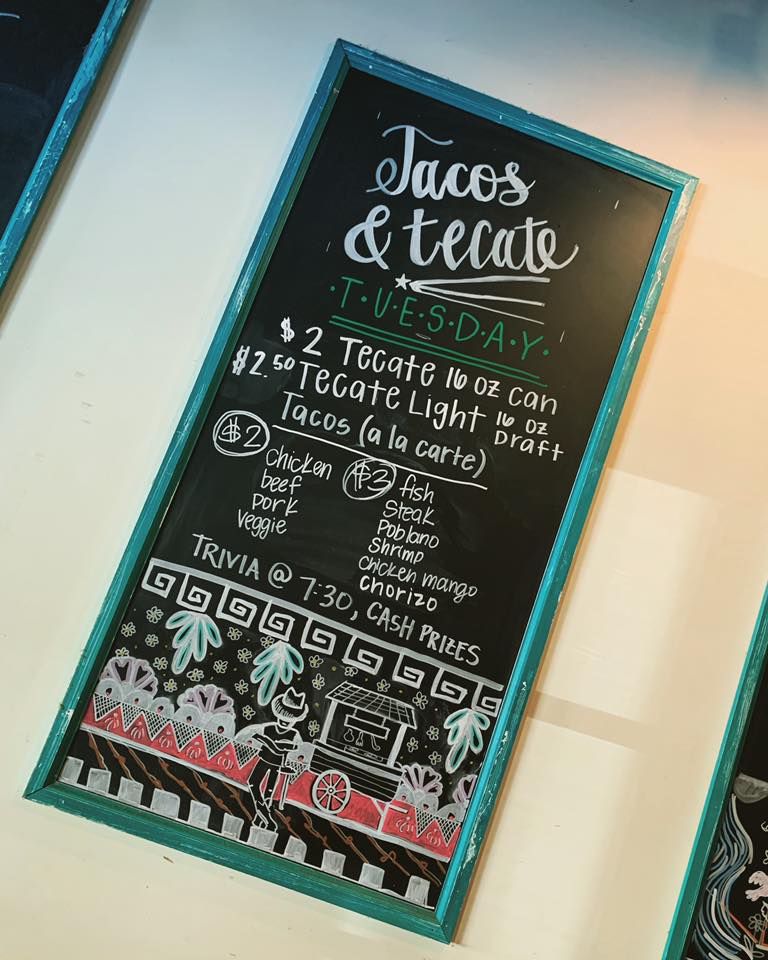 Tacos
& tecate
T·U·E·S·D·A·Y
$2 Tecate 16 oz can
$2.50 Tecate Light 16 oz Draft
Tacos (a la carte)
$2
chicken
beef
pork
veggie
$3
fish
Steak
Poblano
Shrimp
chicken mango
chorizo
TRIVIA @ 7:30, CASH PRIZES